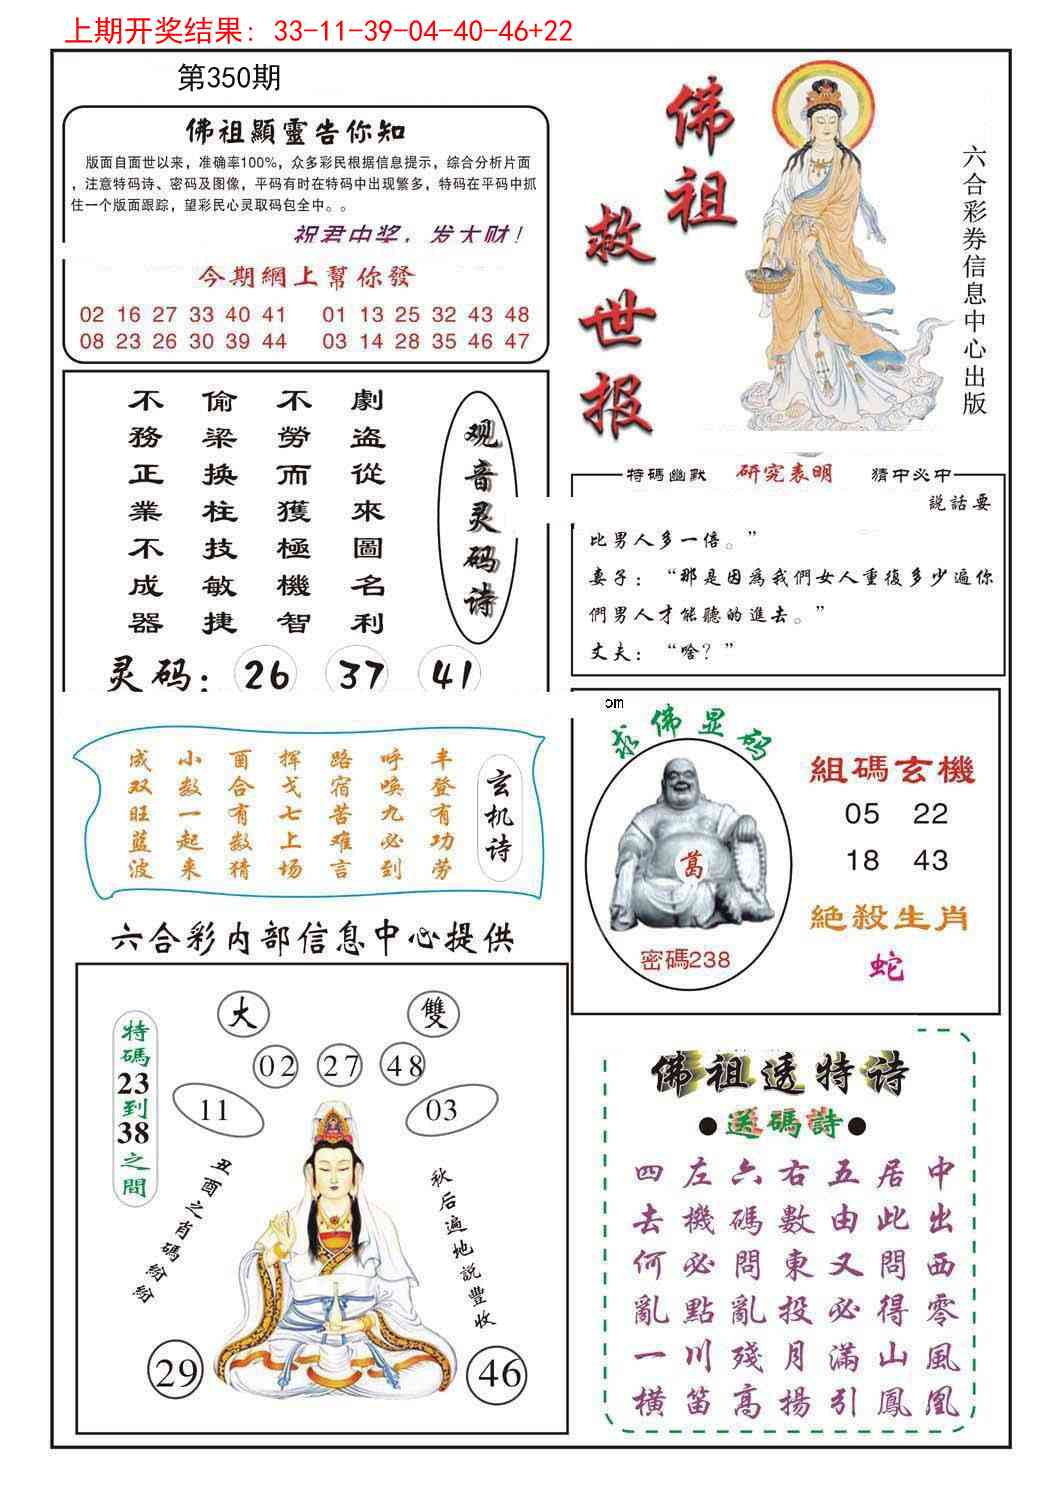 上期开奖结果: 33-11-39-04-40-46+22
第350期
佛祖顯靈告你知
版面自面世以来，准确率100%，众多彩民根据信息提示，综合分析片面
，注意特码诗、密码及图像，平码有时在特码中出现繁多，特码在平码中抓
住一个版面跟踪，望彩民心灵取码包全中。。
祝君中奖，发大财！
今期網上幫你發
02 16 27 33 40 41 01 13 25 32 43 48
08 23 26 30 39 44 03 14 28 35 46 47
佛祖
救世报
六合彩券信息中心出版
观音灵码诗
劇盗從來圖名利
不勞而獲極機智
偷梁换柱技敏捷
不務正業不成器
灵码：26 37 41
特碼幽默 研究表明 猜中必中
説話要
比男人多一倍。”
妻子：“那是因爲我們女人重復多少遍你
們男人才能聽的進去。”
丈夫：“啥？”
om
玄机诗
丰登有功劳
呼唤九必到
路宿苦难言
挥戈七上场
酉合有数猜
小数一起来
成双旺蓝波
求佛显码
葛
密碼238
組碼玄機
05 22
18 43
絶殺生肖
蛇
六合彩内部信息中心提供
特碼23到38之間
大
雙
02 27 48
11
03
丑酉之肖碼紛紛
秋后遍地説豐收
29
46
佛祖透特诗
●送碼詩●
中出西零風凰
居此問得山鳳
五由又必滿引
右數東投月揚
六碼問亂殘高
左機必點川笛
四去何亂一橫